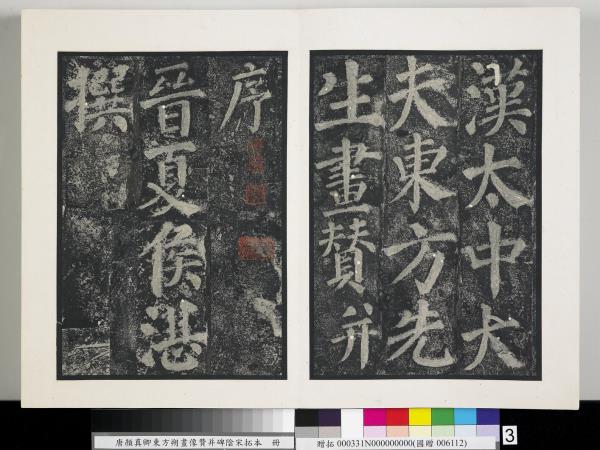 漢太中大
夫東方先
生畫贊并
序
晉夏侯湛
撰
唐顏真卿東方朔畫像贊并碑陰宋拓本 冊
贈拓 000331N000000000(國贈 006112)
3